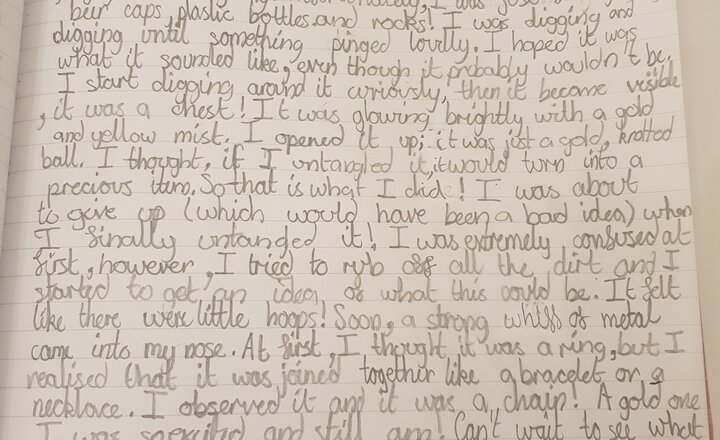 I was just
beer caps, plastic bottles and rocks! I was digging and
digging until something pinged loudly. I hoped it was
what it sounded like, even though it probably wouldn't be.
I start digging around it curiously, then it became visible
, it was a chest! It was glowing brightly with a gold
and yellow mist. I opened it up; it was just a gold, knotted
ball. I thought, if I untangled it, it would turn into a
precious item. So that is what I did! I was about
to give up (which would have been a bad idea) when
I finally untanded it! I was extremely confused at
first, however, I tried to rub off all the dirt and I
started to get an idea of what this could be. It felt
like there were little hoops! Soon, a strong whiff of metal
came into my nose. At first, I thought it was a ring, but I
realised that it was joined together like a bracelet or a
necklace. I observed it and it was a chain! A gold one
I was so excited and still am! Can't wait to see what